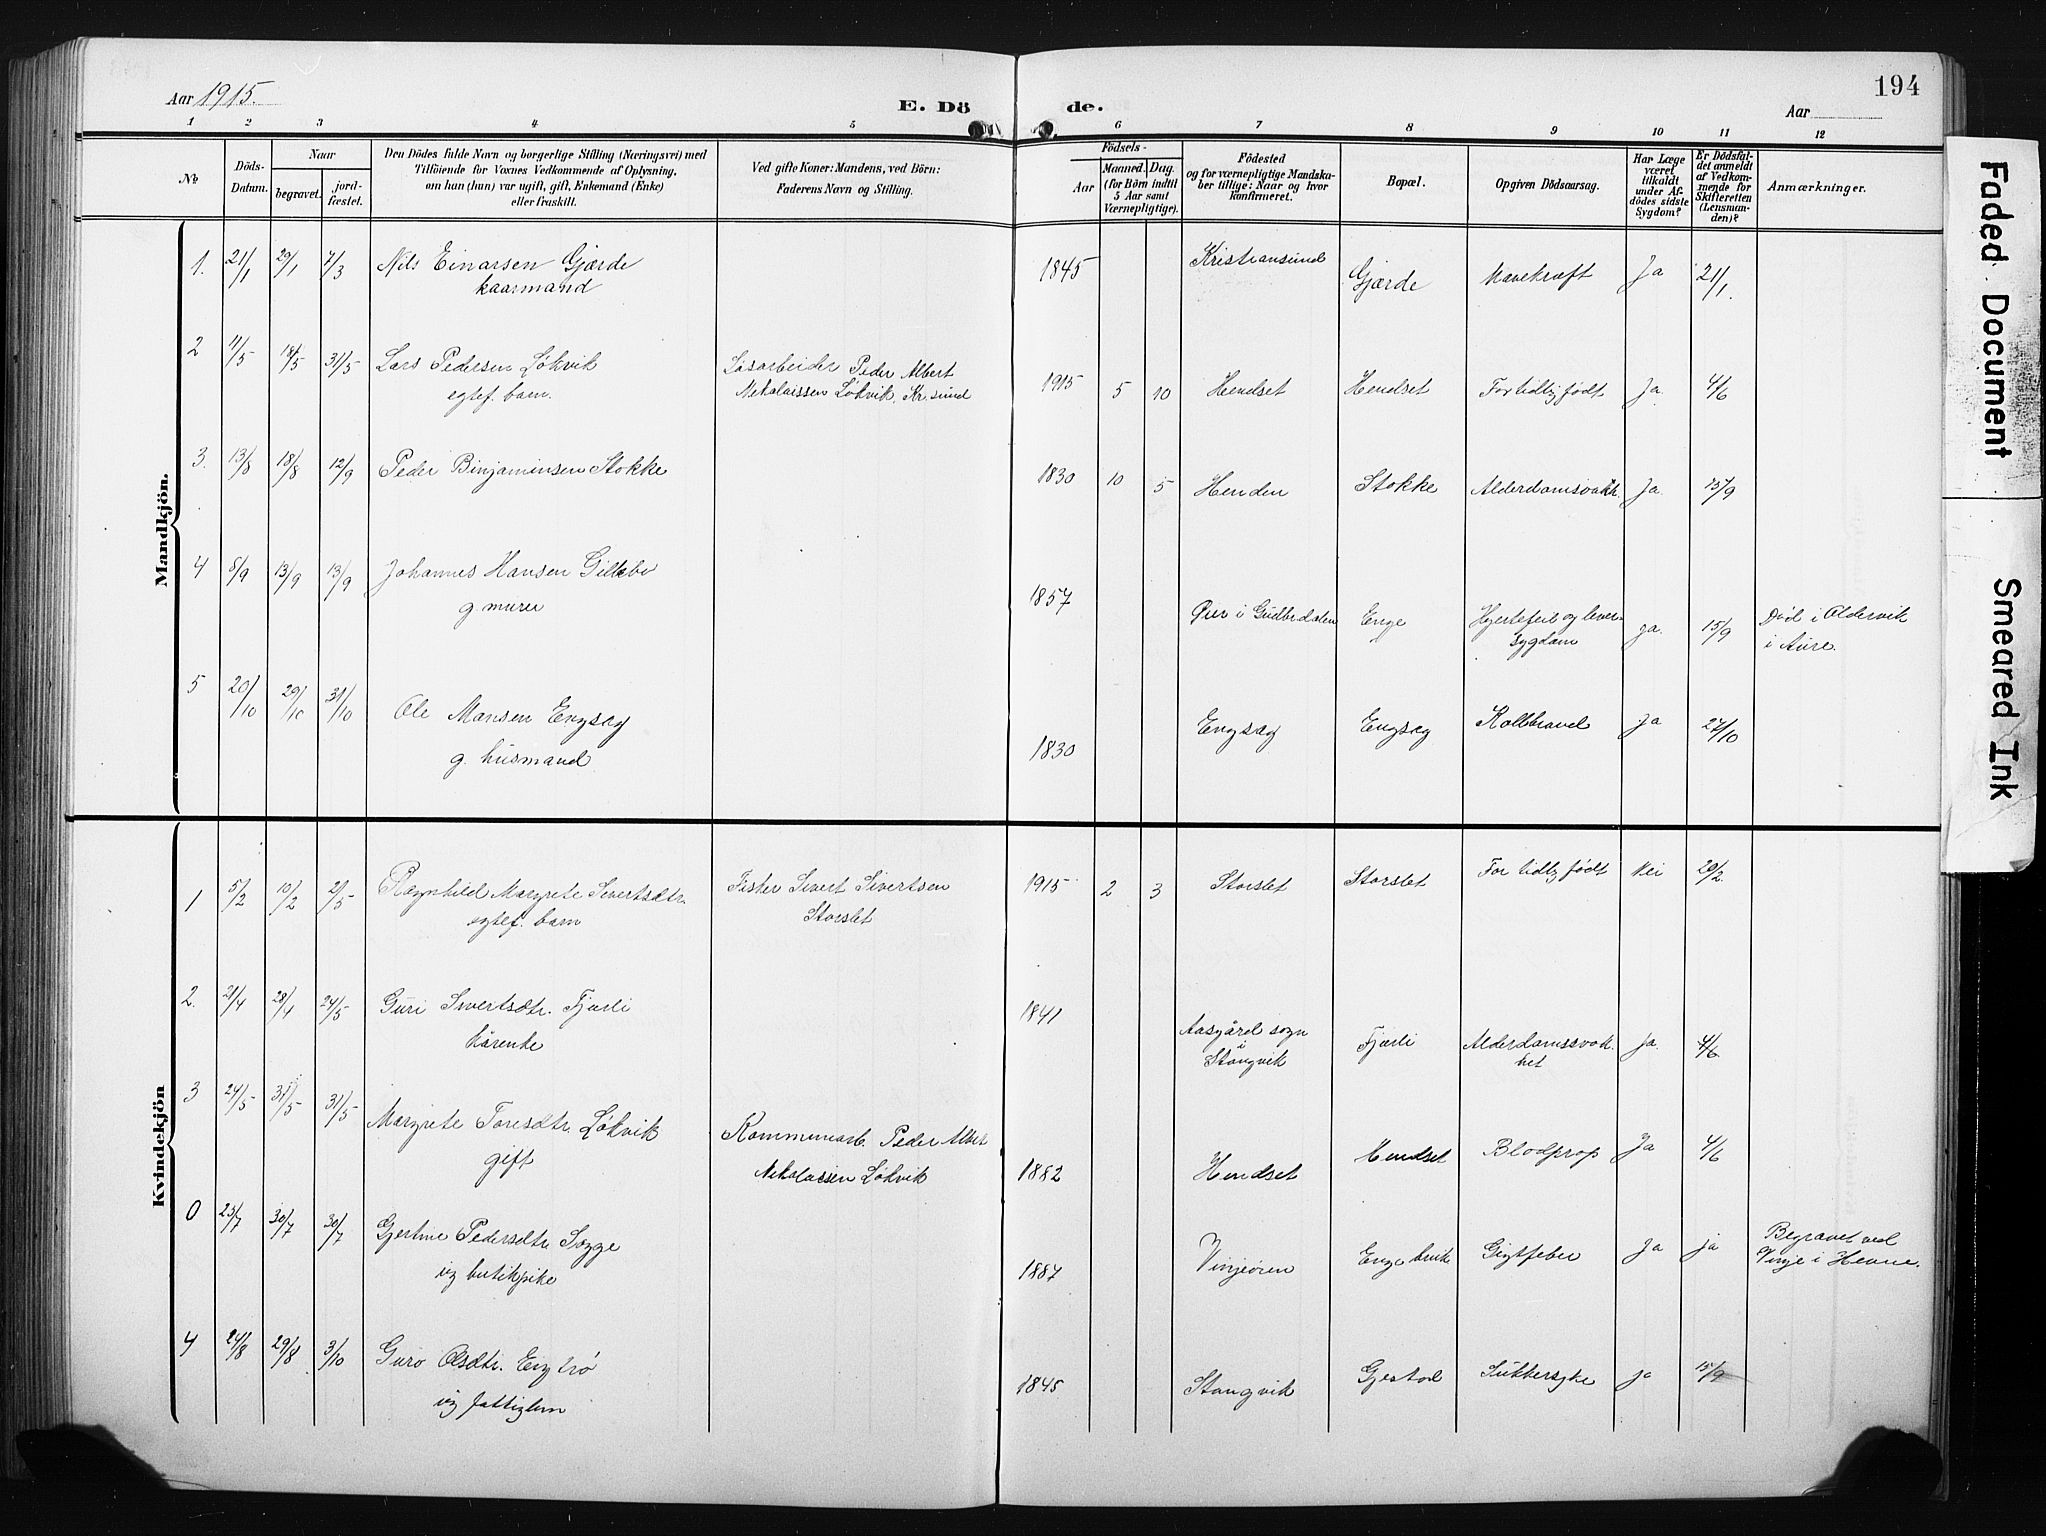 194
Aar 1915.
E. Döde.
Aar
1 2 3 4 5 6 7 8 9 10 11 12
№
Döds-
Datum.
Naar
begravet.
jord-
fæstet.
Den Dödes fulde Navn og borgerlige Stilling (Næringsvei) med
Tilföiende for Voxnes Vedkommende af Oplysning,
om han (hun) var ugift, gift, Enkemand (Enke)
eller fraskilt.
Ved gifte Koner: Mandens, ved Börn:
Faderens Navn og Stilling.
Födsels-
Aar
Maaned. Dag.
(for Börn indtil
5 Aar samt
Værnepligtige).
Födested
og for værnepligtige Mandska-
ber tillige: Naar og hvor
konfirmeret.
Bopæl.
Opgiven Dödsaarsag.
Har Læge
været
tilkaldt
under Af-
dödes sidste
Sygdom?
Er Dödsfal-
det anmeldt
af Vedkom-
mende for
Skifteretten
(Lensman-
den)?
Anmærkninger.
Mandkjön.
1. 21/1 29/1 7/3 Nils Einarsen Gjærde 1845 Kristiansund Gjærde Mavekræft Ja 21/1.
kaarmand
2 11/5 18/5 31/5 Lars Pedersen Løkvik Løsarbeider Peder Albert 1915 5 10 Hendset Hendset For tidlig født Ja. 4/6
egtef. barn. Nikolaissen Løkvik, Kr.sund
3. 13/8 18/8 12/9 Peder Binjaminsen Stokke 1830 10 5 Henden Stokke Alderdomsvakh. Ja. 13/9
4 8/9 13/9 13/9 Johannes Hansen Gillebo 1857 Øier i Gudbrdalen Enge Hjertefeil og lever- ja. 15/9 Død i Aldervik
g. murer sygdom i Aure.
5 20/10 29/10 31/10 Ole Monsen Engsæg 1830 Engsæg Engsæg Koldbrand Ja 27/10
g. husmand
Kvindekjön
1 5/2 10/2 2/5 Ragnhild Margrete Sivertsdtr. Fisker Sivert Sivertsen 1915 2 3 Storslet Storslet For tidlig født Nei 20/2
egtef. barn Storslet
2. 21/4 28/4 24/5 Guri Sivertsdtr. Fjærli 1841 Aasgård sogn i Stangvik Fjærli Alderdomssvak- Ja. 4/6
kårenke het
3 24/5 31/5 31/5 Margrete Toresdtr. Løkvik Kommunearb. Peder Albert 1882 Hendset Hendset Blodprop Ja 4/6
gift Nikolaissen Løkvik
0 23/7 30/7 30/7 Gjertine Pedersdtr. Sogge 1887 Vinjeøren Engebrik Gigtfeber Ja ja Begravet ved
ug butikpike Vinje i Hevne.
4 24/8 29/8 3/10 Guro Olsdtr. Engtrø 1845 Stangvik Gjestod Sukkersyke ja 15/9
ug fattiglem
Faded Document
Smeared Ink